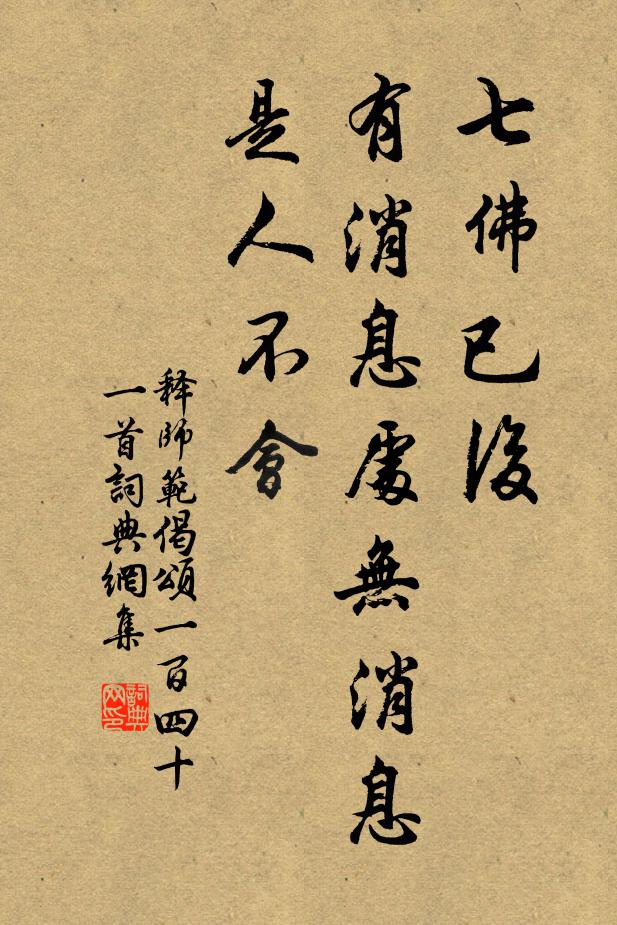 七佛已後
有消息處無消息
是人不會
释師範偈頌一百四十
一首詞典網集
詞典网印